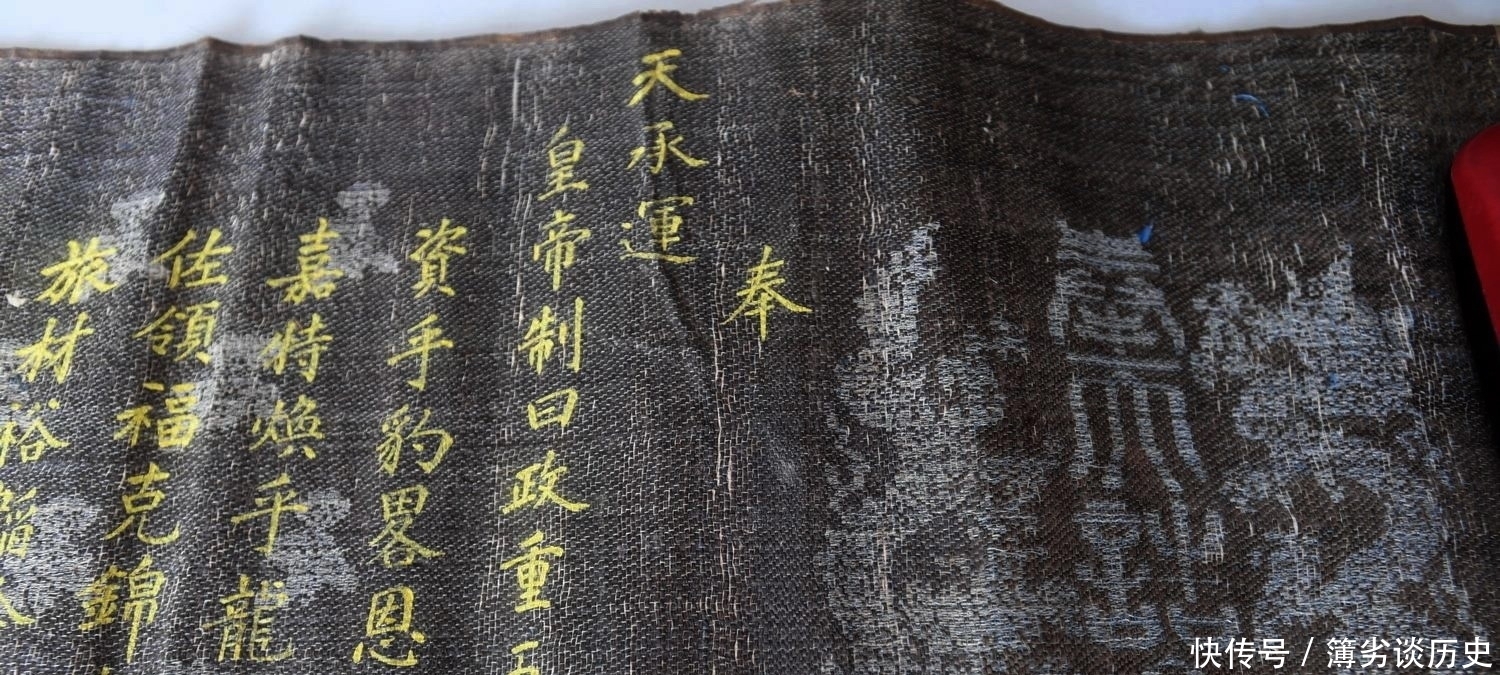 奉
天承運
皇帝制曰政重
資手豹畧恩
嘉特煥乎龍
佐領福克錦
旅材裕
快传号 / 簿劣谈历史